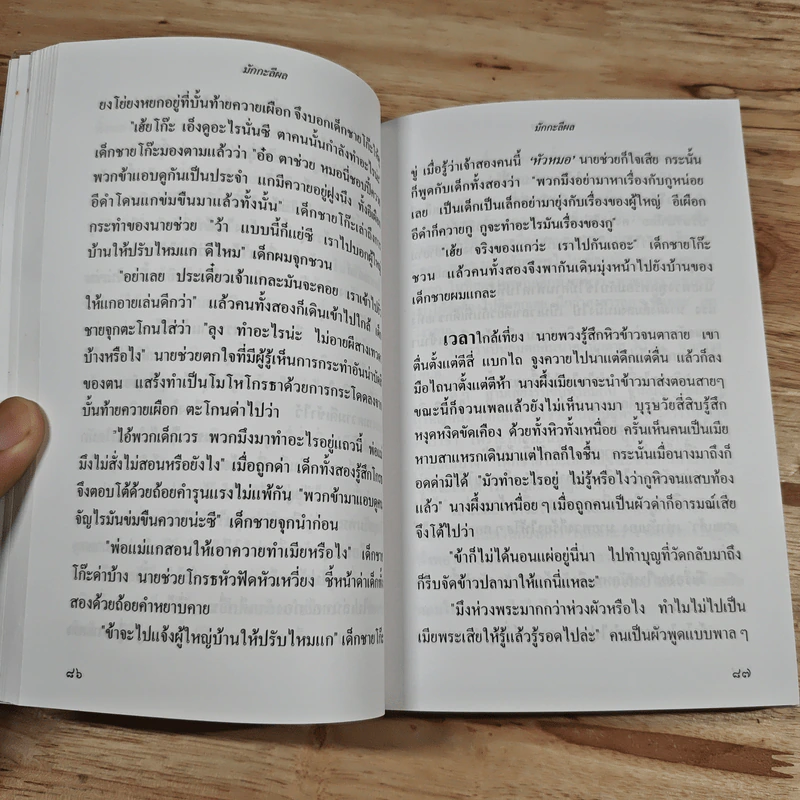 มักกะลีผล
ยงโย่ยงหยกอยู่ที่บั้นท้ายควายเผือก จึงบอกเด็กชายโก๊ะให้ดู
"เฮ้ยโก๊ะ เอ็งดูอะไรนั่นซี ตาคนนั้นกำลังทำอะไร
เด็กชายโก๊ะมองตามแล้วว่า "อ๋อ ตาช่วย หมอนี่ชอบ
พวกข้าแอบดูกันเป็นประจำ แกมีควายอยู่ฝูงนึง ทั้งอีเผือก
อีดำโดนแกข่มขืนมาแล้วทั้งนั้น" เด็กชายโก๊ะเล่าถึงการ
กระทำของนายช่วย "ว้า แบบนี้ก็แย่ซี เราไปบอกผู้ใหญ่
บ้านให้ปรับไหมแก ดีไหม" เด็กผมจุกชวน
"อย่าเลย ประเดี๋ยวเจ้าแกละมันจะคอย เราเข้าไป
ให้แกอายเล่นดีกว่า" แล้วคนทั้งสองก็เดินเข้าไปใกล้ เด็ก
ชายจุกตะโกนใส่ว่า "ลุง ทำอะไรน่ะ ไม่อายผีสางเทวดา
บ้างหรือไง" นายช่วยตกใจที่มีผู้รู้เห็นการกระทำอันน่าบัดสี
ของตน แสร้งทำเป็นโมโหโกรธาด้วยการกระโดดลงจาก
บั้นท้ายควายเผือก ตะโกนด่าไปว่า
"ไอ้พวกเด็กเวร พวกมึงมาทำอะไรอยู่แถวนี้ พ่อแม่
มึงไม่สั่งไม่สอนหรือยังไง" เมื่อถูกด่า เด็กทั้งสองรู้สึกโกรธ
จึงตอบโต้ด้วยถ้อยคำรุนแรงไม่แพ้กัน "พวกข้ามาแอบดูคน
จัญไรมันข่มขืนควายน่ะซี" เด็กชายจุกนำก่อน
"พ่อแม่แกสอนให้เอาควายทำเมียหรือไง" เด็กชาย
โก๊ะด่าบ้าง นายช่วยโกรธหัวฟัดหัวเหวี่ยง ชี้หน้าด่าเด็กทั้ง
สองด้วยถ้อยคำหยาบคาย
"ข้าจะไปแจ้งผู้ใหญ่บ้านให้ปรับไหมแก" เด็กชายโก๊ะ
๘๖
มักกะลีผล
ขู่ เมื่อรู้ว่าเจ้าสองคนนี้ 'หัวหมอ' นายช่วยก็ใจเสีย กระนั้น
ก็พูดกับเด็กทั้งสองว่า "พวกมึงอย่ามาหาเรื่องกับกูหน่อย
เลย เป็นเด็กเป็นเล็กอย่ามายุ่งกับเรื่องของผู้ใหญ่ อีเผือก
อีดำก็ควายกู กูจะทำอะไรมันเรื่องของกู"
"เฮ้ย จริงของแกว่ะ เราไปกันเถอะ" เด็กชายโก๊ะ
ชวน แล้วคนทั้งสองจึงพากันเดินมุ่งหน้าไปยังบ้านของ
เด็กชายผมแกละ
เวลาใกล้เที่ยง นายพวงรู้สึกหิวข้าวจนตาลาย เขา
ตื่นตั้งแต่ตีสี่ แบกไถ จูงควายไปนาแต่ดึกแต่ดื่น แล้วก็ลง
มือไถนาตั้งแต่ตีห้า นางผึ้งเมียเขาจะนำข้าวมาส่งตอนสายๆ
ขณะนี้ก็จวนเพลแล้วยังไม่เห็นนางมา บุรุษวัยสี่สิบรู้สึก
หงุดหงิดขัดเคือง ด้วยทั้งหิวทั้งเหนื่อย ครั้นเห็นคนเป็นเมีย
หาบสาแหรกเดินมาแต่ไกลก็ใจชื้น กระนั้นเมื่อนางมาถึงก็
อดด่ามิได้ "มัวทำอะไรอยู่ ไม่รู้หรือไงว่ากูหิวจนแสบท้อง
แล้ว" นางผึ้งมาเหนื่อยๆ เมื่อถูกคนเป็นผัวด่าก็อารมณ์เสีย
จึงโต้ไปว่า
"ข้าก็ไม่ได้นอนแผ่อยู่นี่นา ไปทำบุญที่วัดกลับมาถึง
ก็รีบจัดข้าวปลามาให้แกนี่แหละ"
"มึงห่วงพระมากกว่าห่วงผัวหรือไง ทำไมไม่ไปเป็น
เมียพระเสียให้รู้แล้วรู้รอดไปล่ะ" คนเป็นผัวพูดแบบพาลๆ
๘๗